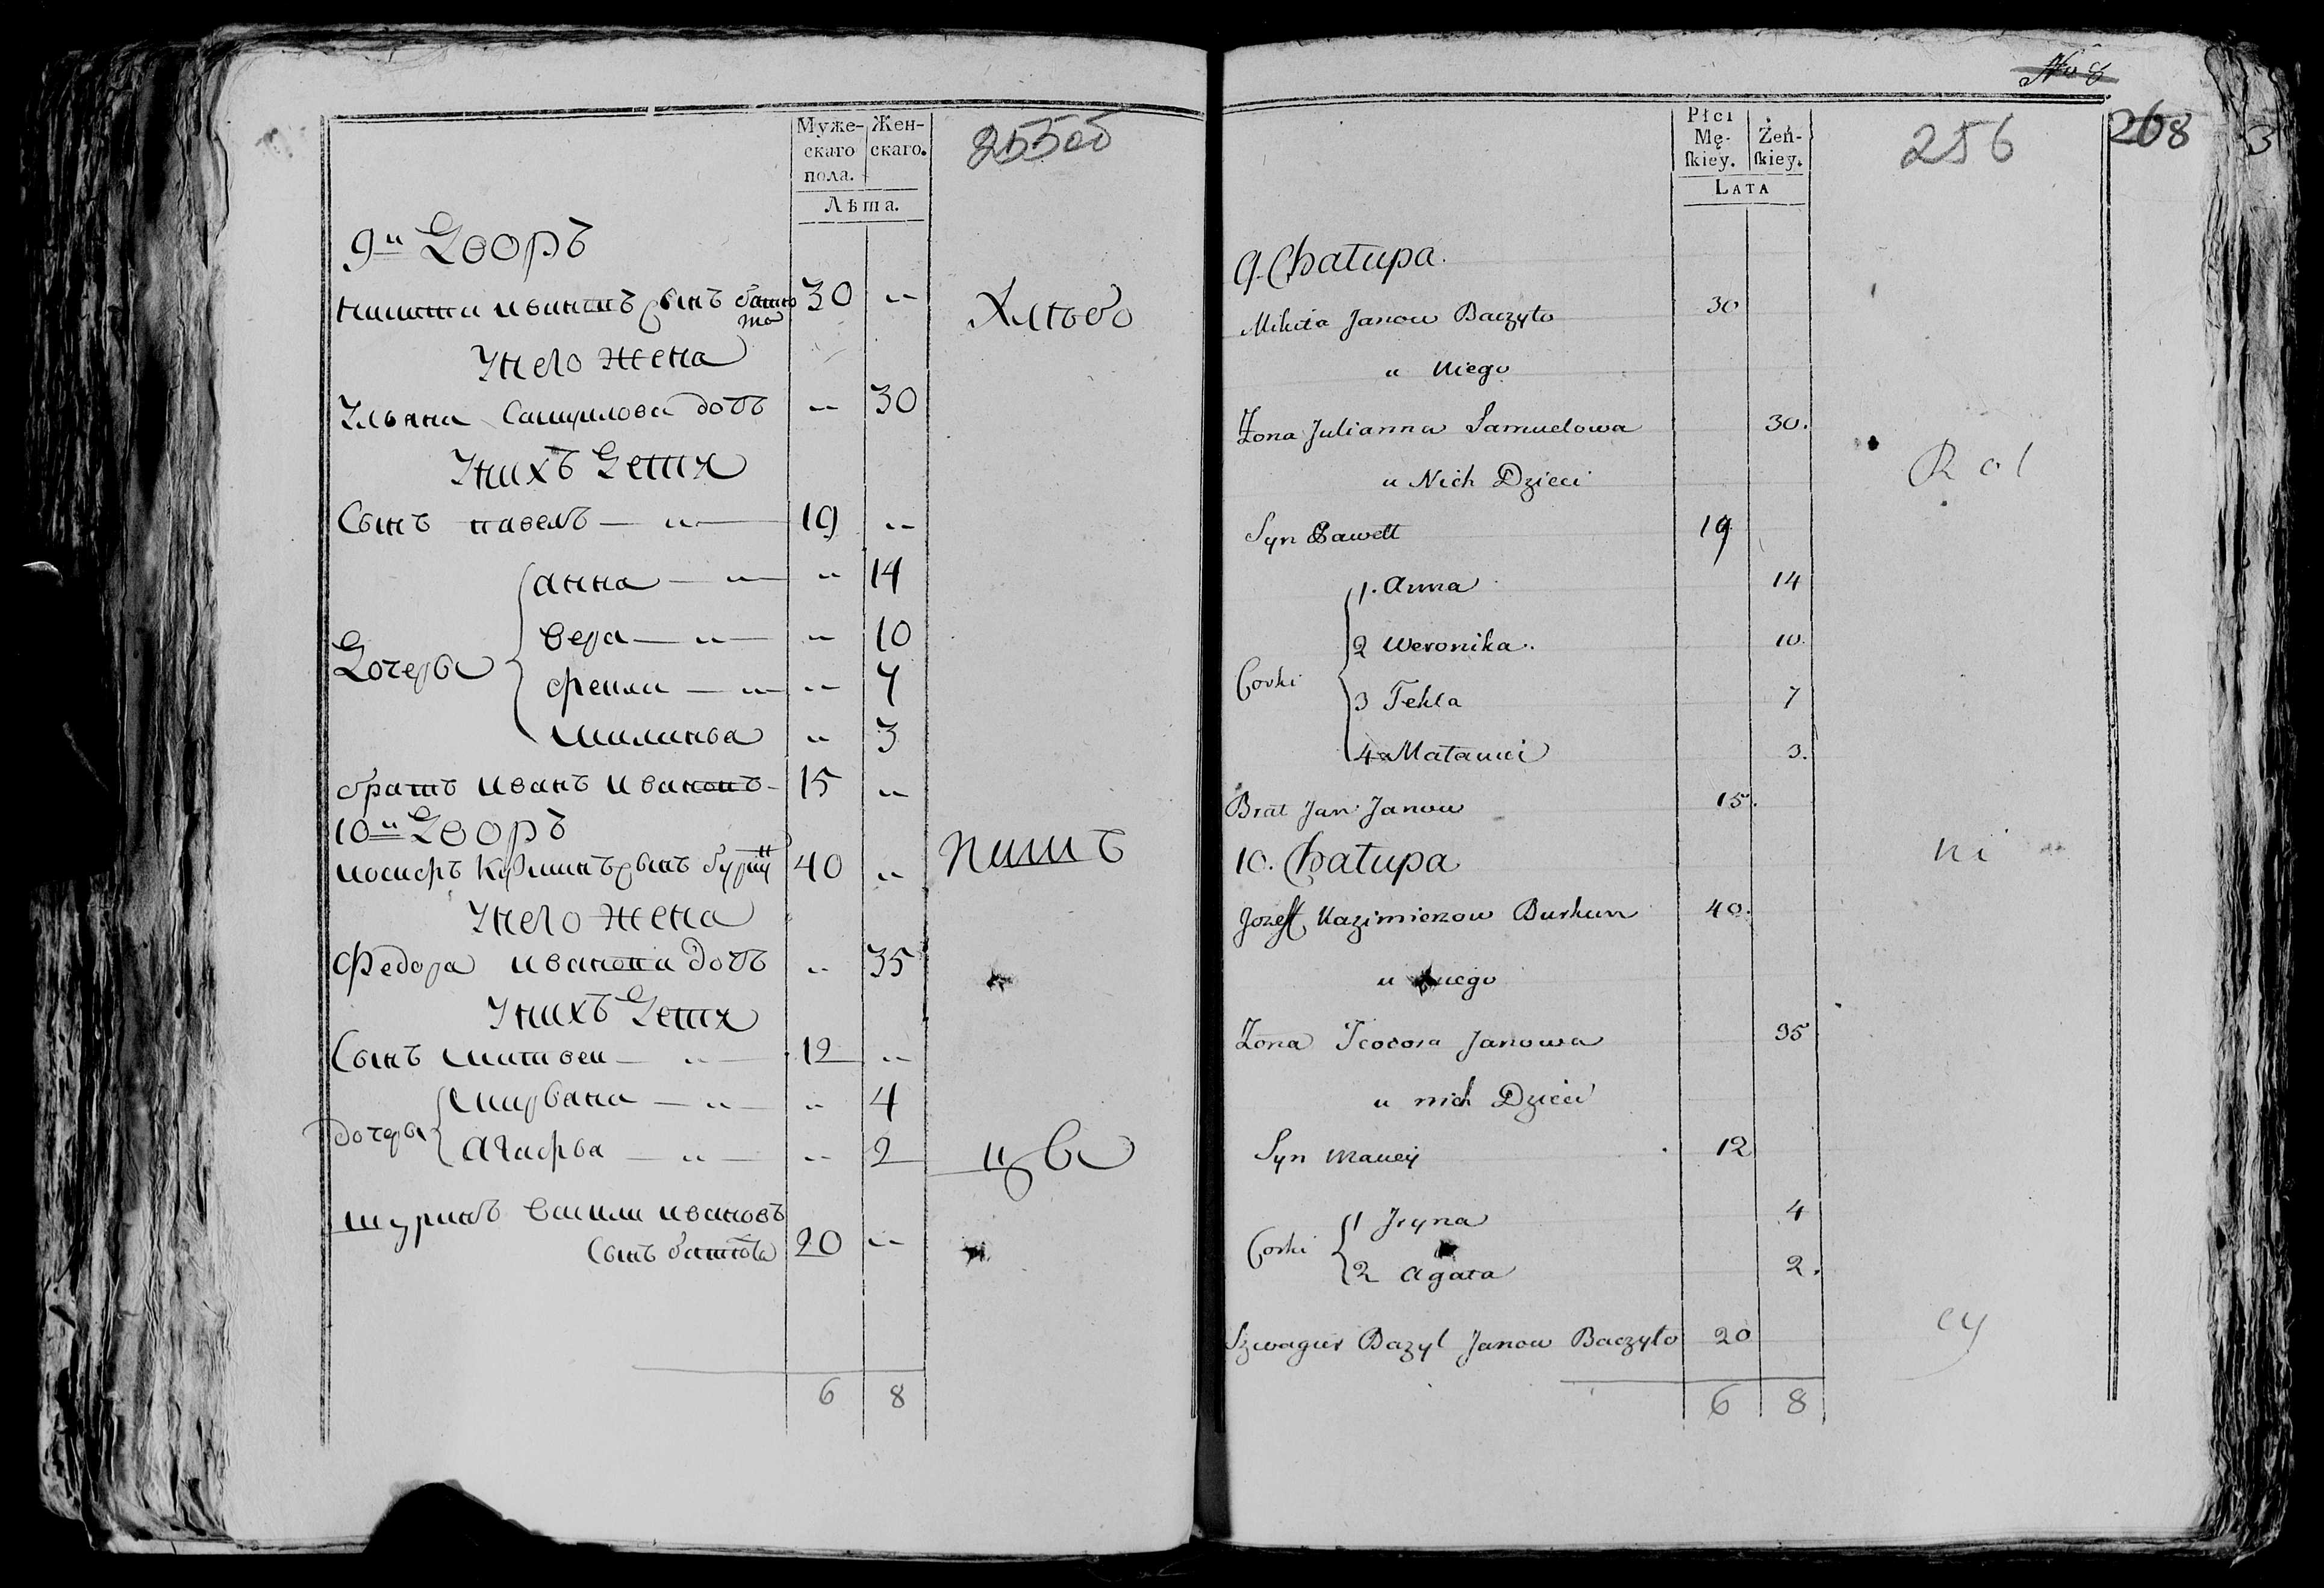 Муже-
скаго
пола.
Жен-
скаго.
Лѣта.
255об
9й Дворъ
Никита Ивановъ сынъ 30 "
Хлѣбо
У него жена
Ульяна Самуилова дочь " 30
У нихъ дети
Сынъ Павелъ — " — 19 "
Дочери
Анна — " — " 14
Вера — " — " 10
Фекла — " — " 7
" 3
братъ Иванъ Ивановъ 15 "
10й Дворъ
Иосифъ сынъ 40 "
пашъ
У него жена
Федора Иванова дочь " 35
У нихъ дети
Сынъ Матвей — " — 12 "
дочери
— " — " 4
Агафья — " — " 2
цы
шуринъ Васили Ивановъ
сынъ 20 "
6 8
No 8
Płci
Mę-
skiey.
Żeń-
skiey.
LATA
256
268
3
9. Chałupa.
Mikita Janow Baczyło 30
u Niego
Żona Julianna Samuelowa 30.
u Nich Dzieci
Rol
Syn Pawełł 19
Corki
1. Anna 14
2 Weronika. 10.
3 Tekla 7
4 3.
Brat Jan Janow 15.
10. Chałupa
ni
Jozeff Kazimierzow Burkun 40.
u niego
Żona Teodora Janowa 35
u nich Dzieci
Syn Maciey 12
Corki
1 Jryna 4
2 Agata 2.
cy
Szwagier Bazyl Janow Baczyło 20
6 8